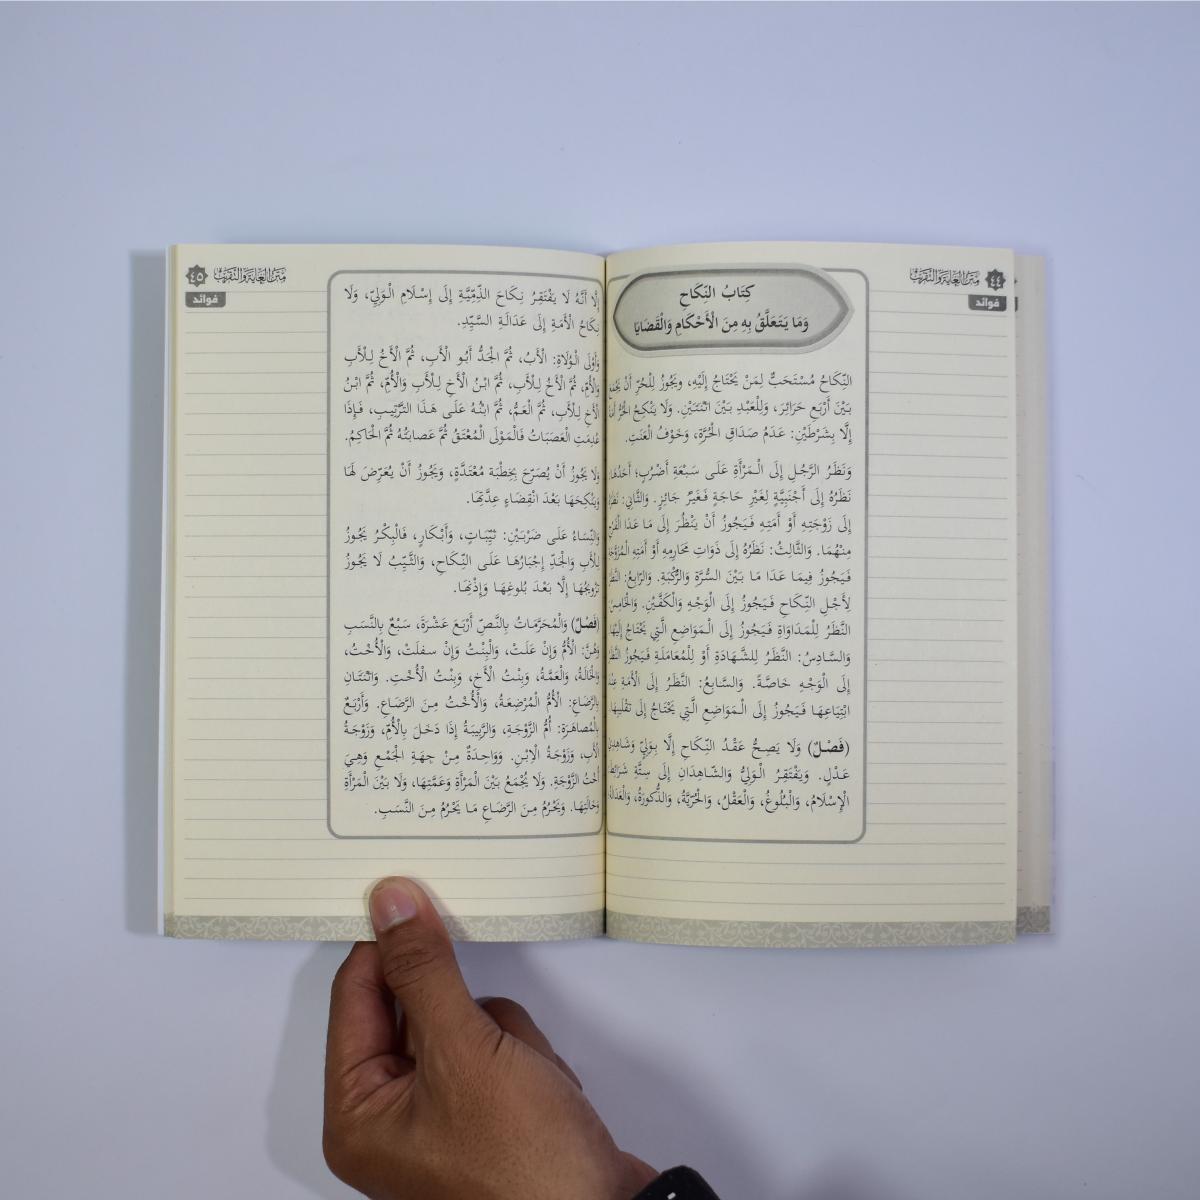 متن الغاية والتقريب
٤٤
فوائد
كِتَابُ النِّكَاحِ
وَمَا يَتَعَلَّقُ بِهِ مِنَ الْأَحْكَامِ وَالْقَضَايَا
النِّكَاحُ مُسْتَحَبٌّ لِمَنْ يَحْتَاجُ إِلَيْهِ، ويَجُوزُ لِلْحُرِّ أَنْ يَجْمَعَ
بَيْنَ أَرْبَعِ حَرَائِرَ، وَلِلْعَبْدِ بَيْنَ اثْنَتَيْنِ. وَلَا يَنْكِحُ الْحُرُّ
إِلَّا بِشَرْطَيْنِ: عَدَمُ صَدَاقِ الْحُرَّةِ، وَخَوْفُ الْعَنَتِ.
وَنَظَرُ الرَّجُلِ إِلَى الْمَرْأَةِ عَلَى سَبْعَةِ أَضْرُبٍ؛ أَحَدُهَا:
نَظَرُهُ إِلَى أَجْنَبِيَّةٍ لِغَيْرِ حَاجَةٍ فَغَيْرُ جَائِزٍ. وَالثَّانِي:
إِلَى زَوْجَتِهِ أَوْ أَمَتِهِ فَيَجُوزُ أَنْ يَنْظُرَ إِلَى مَا عَدَا الْفَرْجَ
مِنْهُمَا. وَالثَّالِثُ: نَظَرُهُ إِلَى ذَوَاتِ مَحَارِمِهِ أَوْ أَمَتِهِ الْمُزَوَّجَةِ
فَيَجُوزُ فِيمَا عَدَا مَا بَيْنَ السُّرَّةِ وَالرُّكْبَةِ. وَالرَّابِعُ:
لِأَجْلِ النِّكَاحِ فَيَجُوزُ إِلَى الْوَجْهِ وَالْكَفَّيْنِ. وَالْخَامِسُ:
النَّظَرُ لِلْمُدَاوَاةِ فَيَجُوزُ إِلَى الْمَوَاضِعِ الَّتِي يَحْتَاجُ إِلَيْهَا.
وَالسَّادِسُ: النَّظَرُ لِلشَّهَادَةِ أَوْ لِلْمُعَامَلَةِ فَيَجُوزُ النَّظَرُ
إِلَى الْوَجْهِ خَاصَّةً. وَالسَّابِعُ: النَّظَرُ إِلَى الْأَمَةِ عِنْدَ
ابْتِيَاعِهَا فَيَجُوزُ إِلَى الْمَوَاضِعِ الَّتِي يَحْتَاجُ إِلَى تَقْلِيبِهَا.
(فَصْلٌ) وَلَا يَصِحُّ عَقْدُ النِّكَاحِ إِلَّا بِوَلِيٍّ وَشَاهِدَيْ
عَدْلٍ. وَيَفْتَقِرُ الْوَلِيُّ وَالشَّاهِدَانِ إِلَى سِتَّةِ شَرَائِطَ:
الْإِسْلَامُ، وَالْبُلُوغُ، وَالْعَقْلُ، وَالْحُرِّيَّةُ، وَالذُّكُورَةُ، وَالْعَدَالَةُ.
متن الغاية والتقريب
٤٥
فوائد
إِلَّا أَنَّهُ لَا يَفْتَقِرُ نِكَاحُ الذِّمِّيَّةِ إِلَى إِسْلَامِ الْوَلِيِّ، وَلَا
نِكَاحُ الْأَمَةِ إِلَى عَدَالَةِ السَّيِّدِ.
وَأَوْلَى الْوُلَاةِ: الْأَبُ، ثُمَّ الْجَدُّ أَبُو الْأَبِ، ثُمَّ الْأَخُ لِلْأَبِ
وَالْأُمِّ، ثُمَّ الْأَخُ لِلْأَبِ، ثُمَّ ابْنُ الْأَخِ لِلْأَبِ وَالْأُمِّ، ثُمَّ ابْنُ
الْأَخِ لِلْأَبِ، ثُمَّ الْعَمُّ، ثُمَّ ابْنُهُ عَلَى هَذَا التَّرْتِيبِ، فَإِذَا
عُدِمَتِ الْعَصَبَاتُ فَالْمَوْلَى الْمُعْتِقُ ثُمَّ عَصَابَتُهُ ثُمَّ الْحَاكِمُ.
وَلَا يَجُوزُ أَنْ يُصَرِّحَ بِخِطْبَةِ مُعْتَدَّةٍ، وَيَجُوزُ أَنْ يُعَرِّضَ لَهَا
وَيَنْكِحَهَا بَعْدَ انْقِضَاءِ عِدَّتِهَا.
وَالنِّسَاءُ عَلَى ضَرْبَيْنِ: ثَيِّبَاتٍ، وَأَبْكَارٍ، فَالْبِكْرُ يَجُوزُ
لِلْأَبِ وَالْجَدِّ إِجْبَارُهَا عَلَى النِّكَاحِ، وَالثَّيِّبُ لَا يَجُوزُ
تَزْوِيجُهَا إِلَّا بَعْدَ بُلُوغِهَا وَإِذْنِهَا.
(فَصْلٌ) وَالْمُحَرَّمَاتُ بِالنَّصِّ أَرْبَعَ عَشْرَةَ، سَبْعٌ بِالنَّسَبِ
وَهُنَّ: الْأُمُّ وَإِنْ عَلَتْ، وَالْبِنْتُ وَإِنْ سفلَتْ، وَالْأُخْتُ،
وَالْخَالَةُ، وَالْعَمَّةُ، وَبِنْتُ الْأَخِ، وَبِنْتُ الْأُخْتِ. وَاثْنَتَانِ
بِالرَّضَاعِ: الْأُمُّ الْمُرْضِعَةُ، وَالْأُخْتُ مِنَ الرَّضَاعِ. وَأَرْبَعٌ
بِالْمُصَاهَرَةِ: أُمُّ الزَّوْجَةِ، وَالرَّبِيبَةُ إِذَا دَخَلَ بِالْأُمِّ، وَزَوْجَةُ
الْأَبِ، وَزَوْجَةُ الِابْنِ. وَوَاحِدَةٌ مِنْ جِهَةِ الْجَمْعِ وَهِيَ
أُخْتُ الزَّوْجَةِ. وَلَا يُجْمَعُ بَيْنَ الْمَرْأَةِ وَعَمَّتِهَا، وَلَا بَيْنَ الْمَرْأَةِ
وَخَالَتِهَا. وَيَحْرُمُ مِنَ الرَّضَاعِ مَا يَحْرُمُ مِنَ النَّسَبِ.